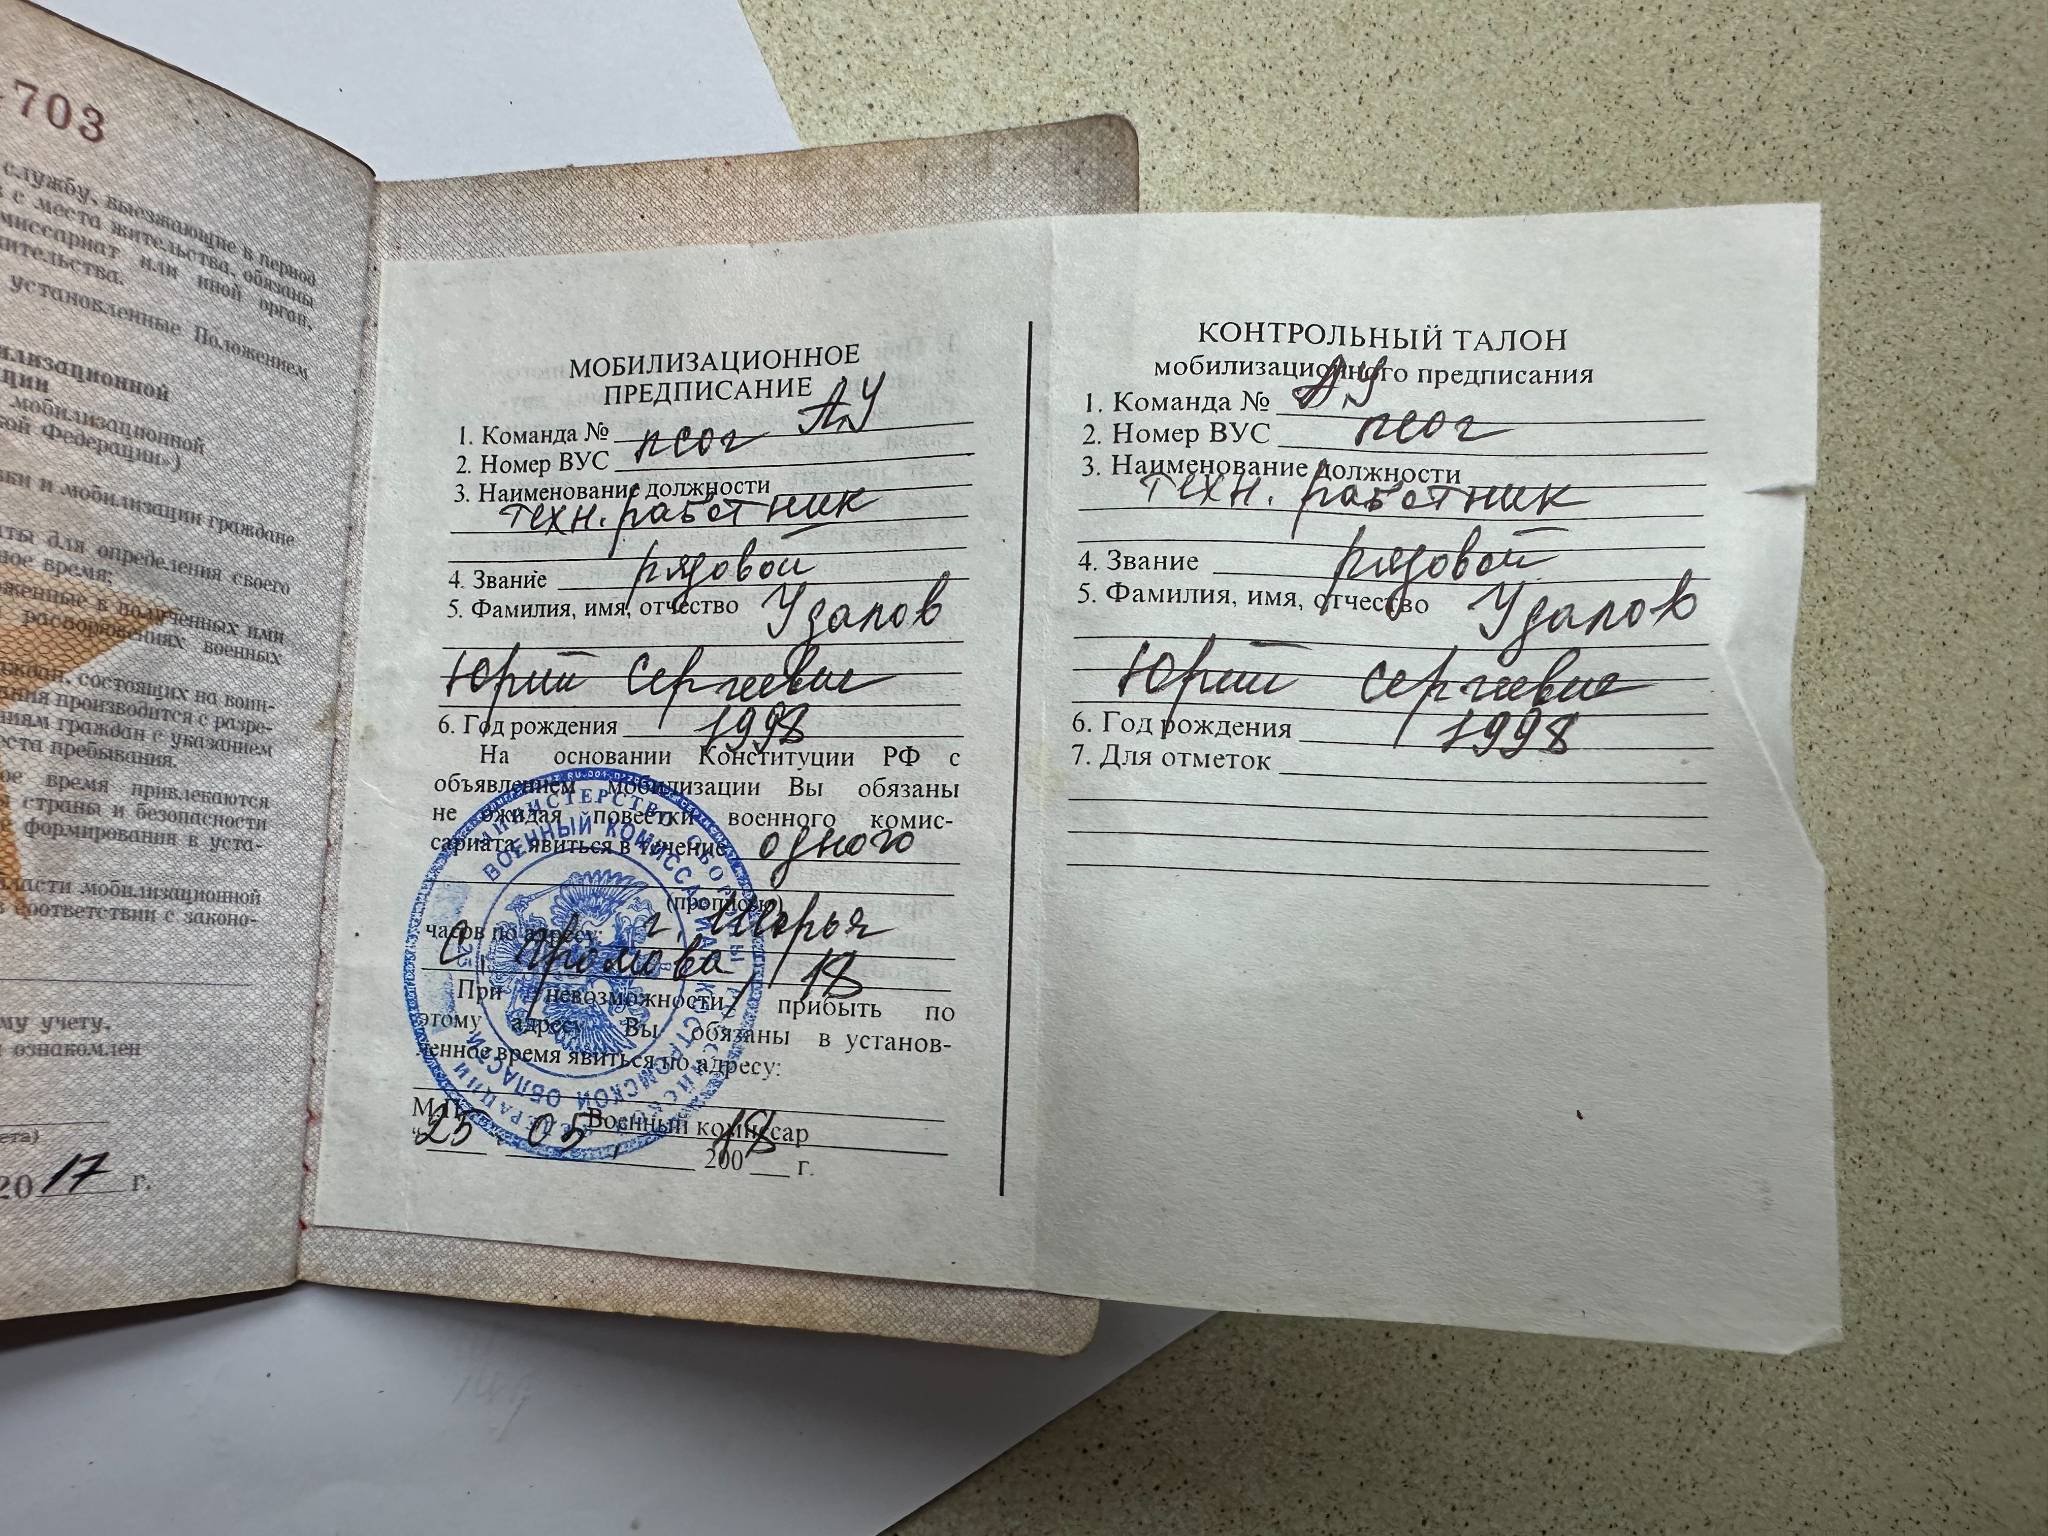 703
службу, выезжающие в период
с места жительства, обязаны
миссариат или иной орган,
жительства.
установленные Положением
мобилизационной
кой Федерации»)
ки и мобилизации граждане
для определения своего
ное время;
женные в полученных ими
распоряжениях военных
состоящих на воин-
ания производится с разре-
ниям граждан с указанием
места пребывания.
время привлекаются
страны и безопасности
формирования в уста-
области мобилизационной
в соответствии с законо-
му учету.
ознакомлен
2017 г.
МОБИЛИЗАЦИОННОЕ
ПРЕДПИСАНИЕ
1. Команда № А,У
2. Номер ВУС
3. Наименование должности
техн. работник
4. Звание рядовой
5. Фамилия, имя, отчество Удалов
Юрий Сергеевич
6. Год рождения 1998
На основании Конституции РФ с
объявлением мобилизации Вы обязаны
не ожидая повестки военного комис-
сариата, явиться в течение одного
(прописью)
часов по адресу: г.
18
При невозможности прибыть по
этому адресу Вы обязаны в установ-
ленное время явиться по адресу:
М.П. Военный комиссар
"25 05 200 18 г.
МИНИСТЕРСТВО ОБОРОНЫ РОССИЙСКОЙ ФЕДЕРАЦИИ
ВОЕННЫЙ КОМИССАРИАТ КОСТРОМСКОЙ ОБЛАСТИ
КОНТРОЛЬНЫЙ ТАЛОН
мобилизационного предписания
1. Команда № А,У
2. Номер ВУС
3. Наименование должности
техн. работник
4. Звание рядовой
5. Фамилия, имя, отчество Удалов
Юрий Сергеевич
6. Год рождения 1998
7. Для отметок